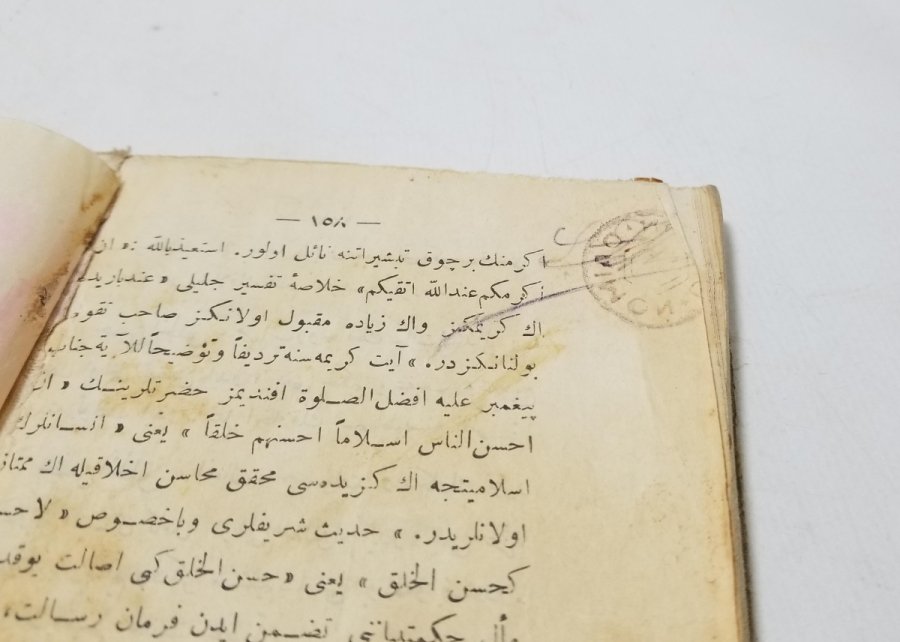 — ١٥٨ —
اكرمنك برچوق تبشيراتنه نائل اولور. استعيذ بالله : « ان
اكرمكم عندالله اتقيكم» خلاصهٔ تفسير جليلى « عندباريده
اك كريمكز واك زياده مقبول اولانكز صاحب تقوى
بولنانكزدر. » آيت كريمه سنه ترديفاً وتوضيحاً للآية جناب
پيغمبر عليه افضل الصلوة افنديمز حضرتلرينك « ان
احسن الناس اسلاماً احسنهم خلقاً » يعنى « انسانلرك
اسلاميتجه اك كزيده سى محقق محاسن اخلاقيله اك ممتاز
اولانلريدر. » حديث شريفلرى وباخصوص « لاحسب
كحسن الخلق » يعنى « حسن الخلق كبى اصالت يوقدر
حكمتبياننى تضمن ايدن فرمان رسالت